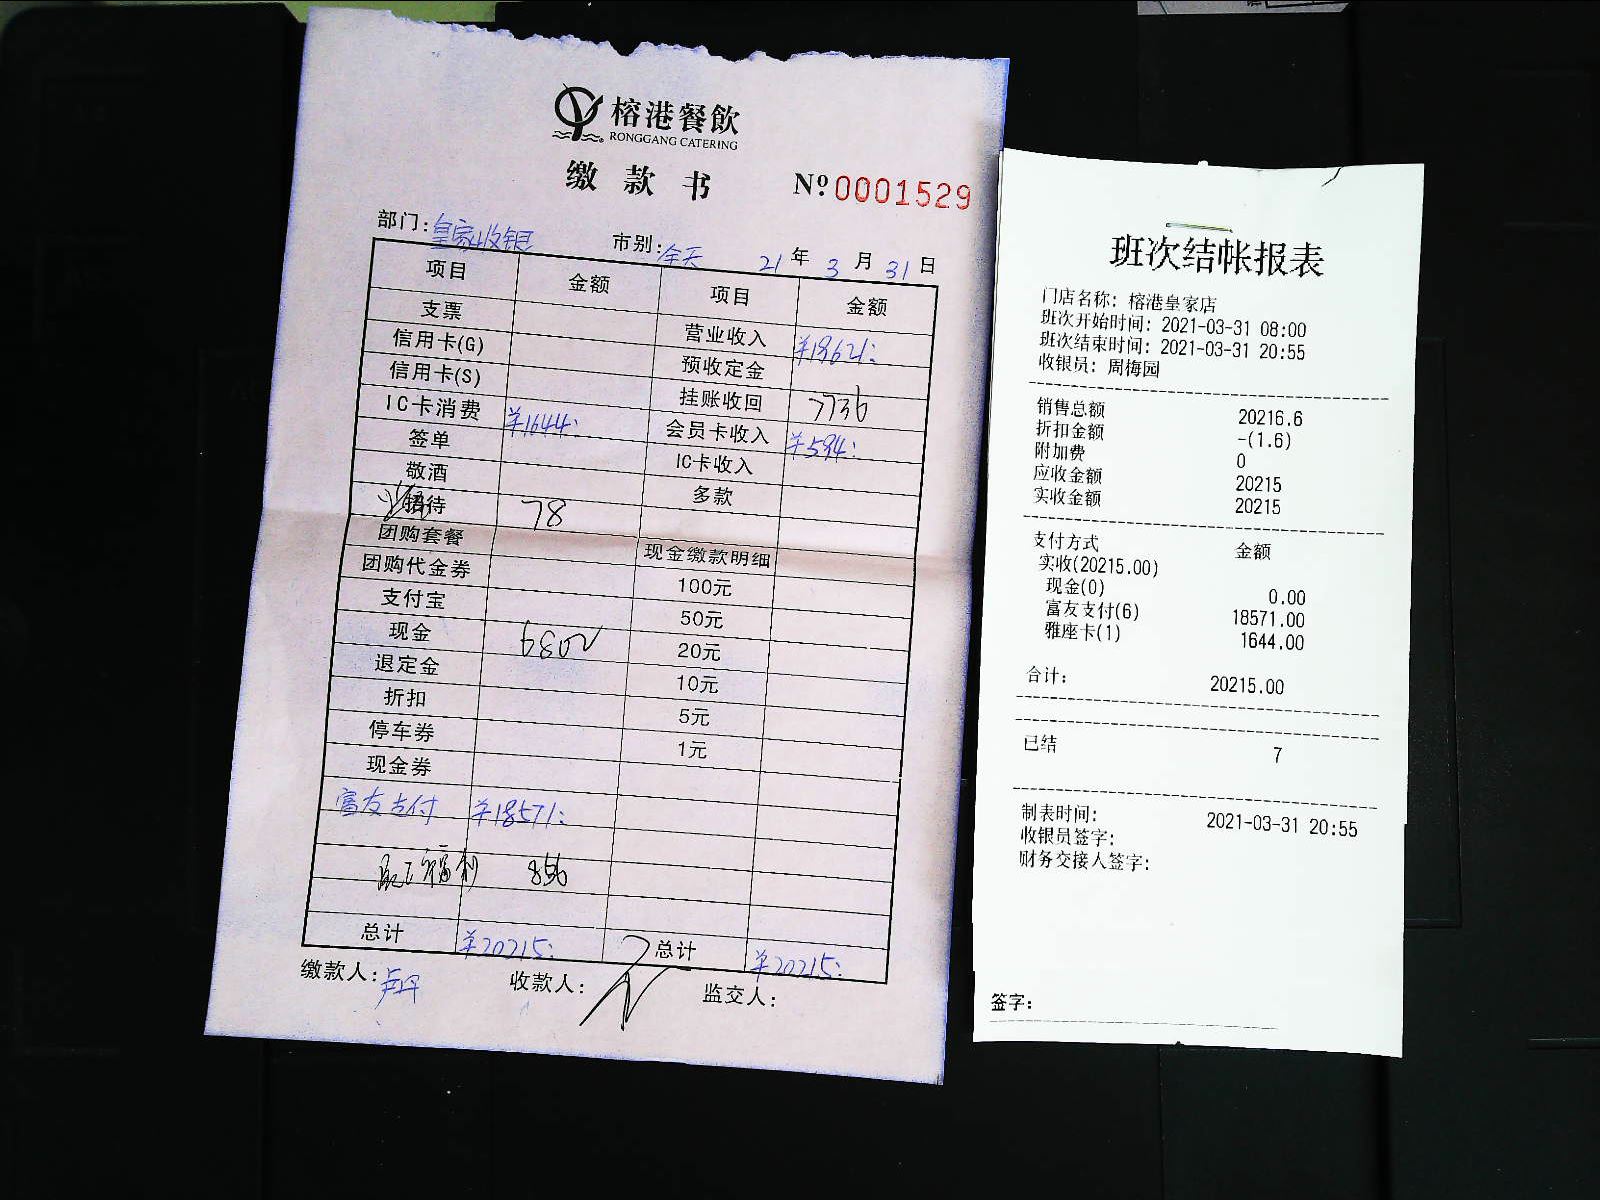 榕港餐飲
RONGGANG CATERING
缴款书 № 0001529
部门: 皇家收银 市别: 全天 21年3月31日
项目 金额 项目 金额
支票 营业收入 ¥19621:
信用卡(G) 预收定金
信用卡(S) 挂账收回 7736
IC卡消费 ¥1644: 会员卡收入 ¥594:
签单 IC卡收入
敬酒 多款
招待 78
团购套餐 现金缴款明细
团购代金券 100元
支付宝 50元
现金 6802 20元
退定金 10元
折扣 5元
停车券 1元
现金券
富友支付 ¥18571:
员工福利 856
总计 ¥20215: 总计 ¥20215:
缴款人: 收款人: 监交人:
班次结帐报表
门店名称: 榕港皇家店
班次开始时间: 2021-03-31 08:00
班次结束时间: 2021-03-31 20:55
收银员: 周梅园
销售总额 20216.6
折扣金额 -(1.6)
附加费 0
应收金额 20215
实收金额 20215
支付方式 金额
实收(20215.00)
现金(0) 0.00
富友支付(6) 18571.00
雅座卡(1) 1644.00
合计: 20215.00
已结 7
制表时间: 2021-03-31 20:55
收银员签字:
财务交接人签字:
签字: